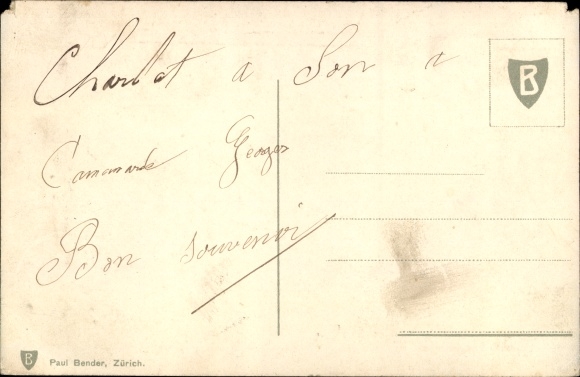 Charlot a Son
Camarade Georges
Bon Souvenir
B
B
Paul Bender, Zürich.